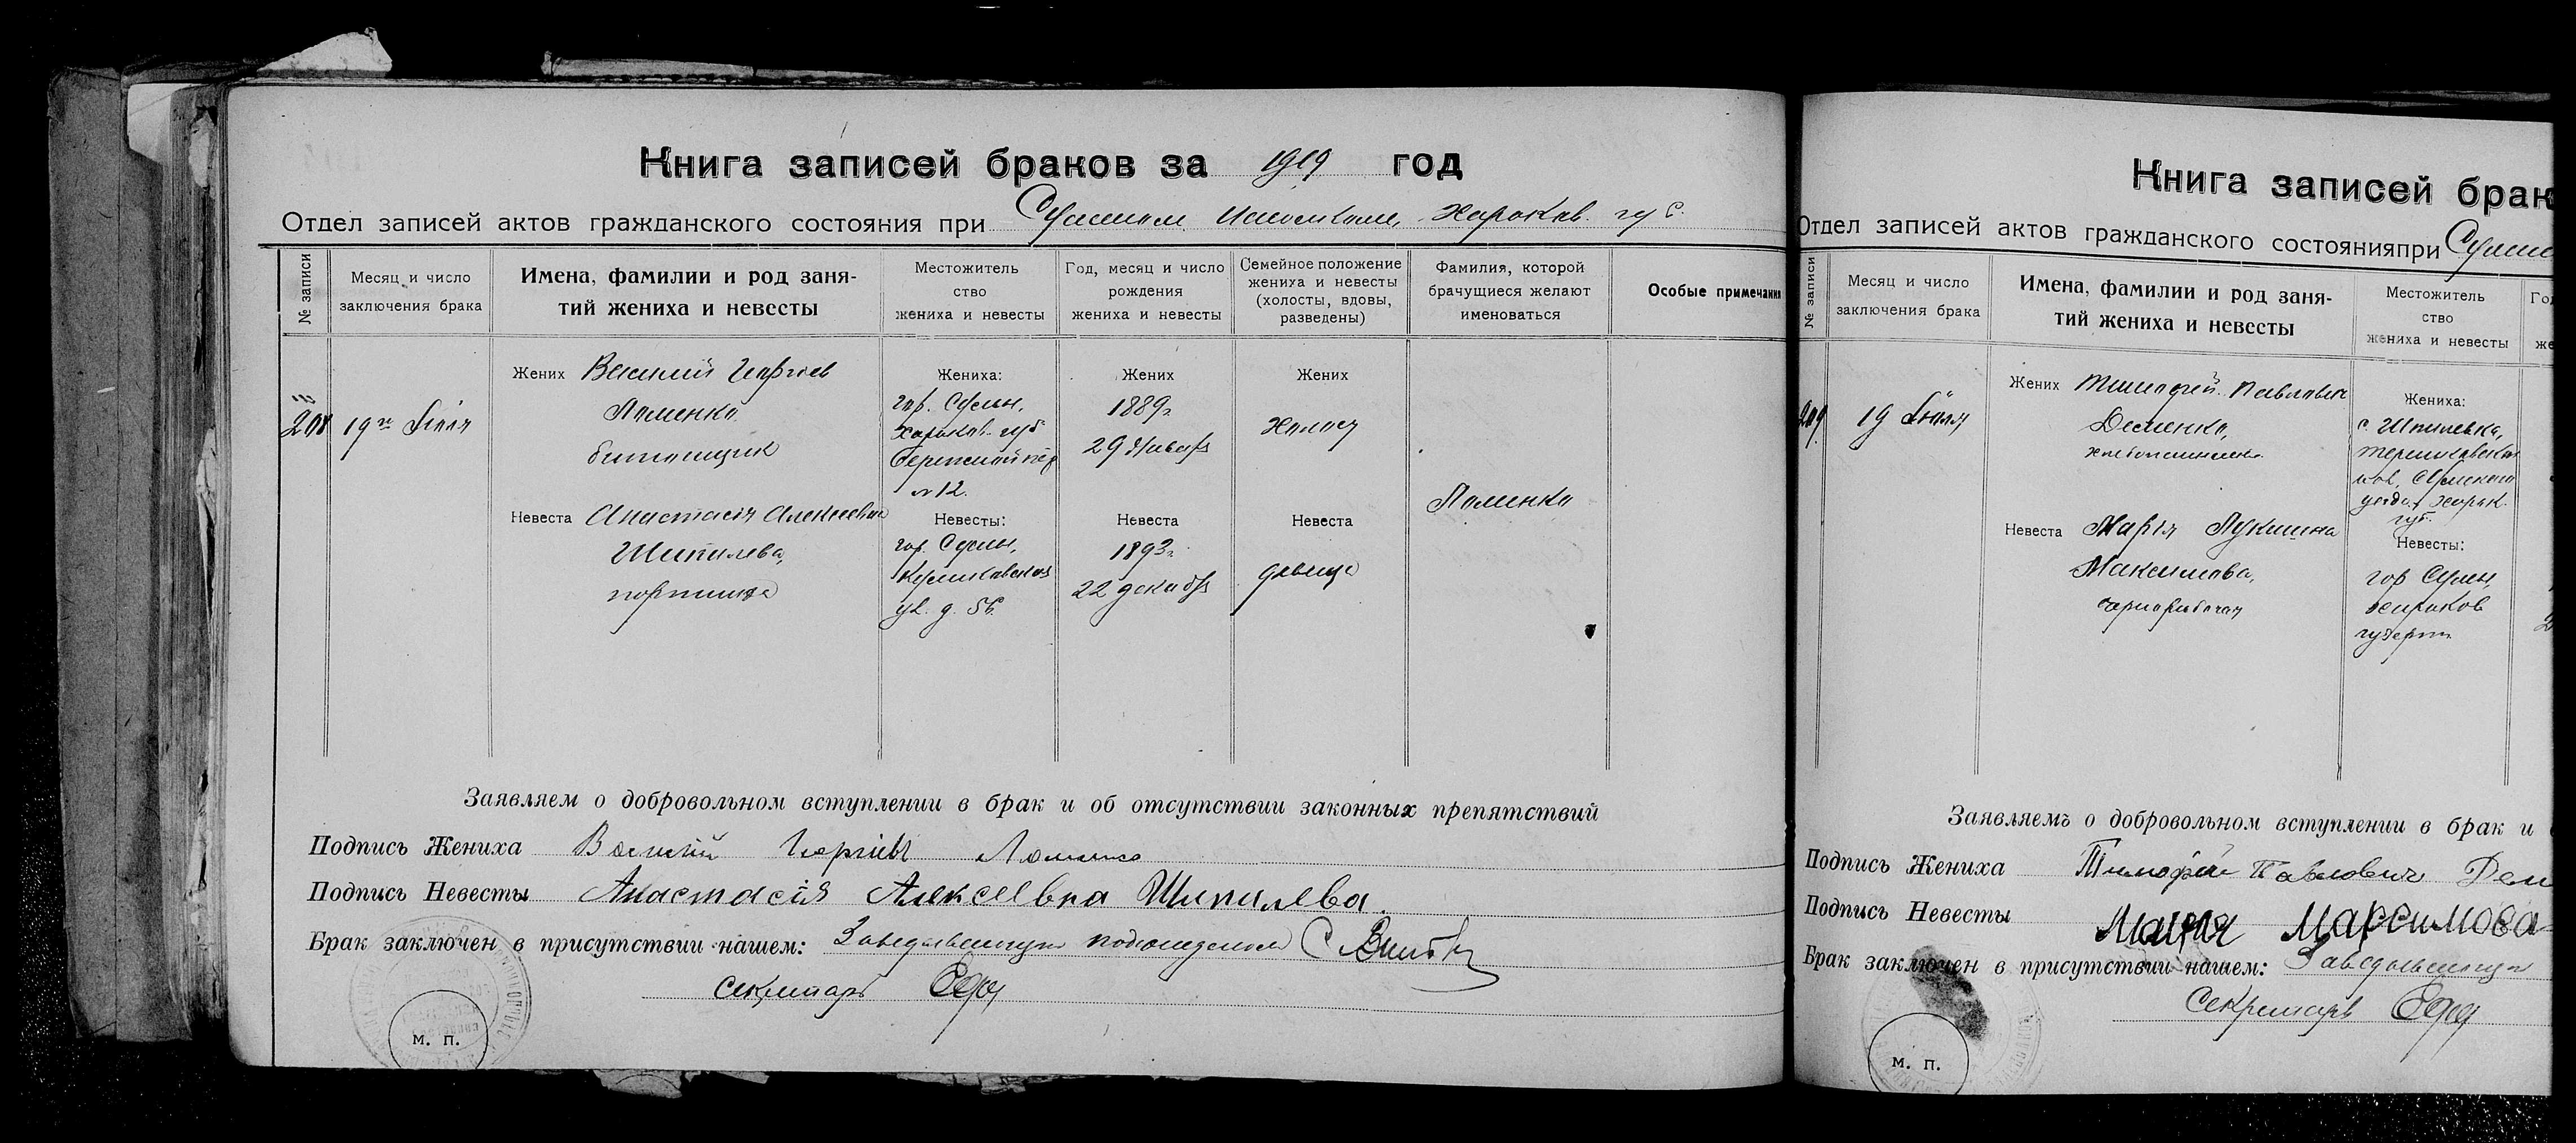 Книга записей браков за 1919 год
Отдел записей актов гражданского состояния при Сумском Исполкоме, Харьков. губ.
№ записи
Месяц и число заключения брака
Имена, фамилии и род занятий жениха и невесты
Местожительство жениха и невесты
Год, месяц и число рождения жениха и невесты
Семейное положение жениха и невесты (холосты, вдовы, разведены)
Фамилия, которой брачущиеся желают именоваться
Особые примечания
208
19го Iюля
Жених Василий Георгіев
Ломенко
Невеста Анастасія Алексеевна
Шипилева,
портниха
Жениха:
гор. Сумы,
Харьков. губ.
№ 12.
Невесты:
гор. Сумы,
ул. д. 56.
Жених
1889г.
29 Января
Невеста
1893г.
22 декабря
Жених
Холост
Невеста
девица
Ломенко
Заявляем о добровольном вступлении в брак и об отсутствии законных препятствий
Подпись Жениха Василий Георгіевъ Ломенко
Подпись Невесты Анастасія Алексеевна Шипилева.
Брак заключен в присутствии нашем: Заведывающий подотделом
Секретарь
м. п.
Книга записей брак
Отдел записей актов гражданского состояния при Сумс
№ записи
Месяц и число заключения брака
Имена, фамилии и род занятий жениха и невесты
Местожительство жениха и невесты
209
19 Iюля
Жених Тимофей Павлович
Деменко,
Невеста Марія Лукинина
Максимова,
чернорабочая
Жениха:
с. Шпилевка,
вол. Сумского
уезда, Харьк.
губ.
Невесты:
гор Сумы,
Харьков
губерніи
Заявляемъ о добровольном вступлении в брак и
Подпись Жениха Тимофей Павлович Дем
Подпись Невесты Мария Марсимова
Брак заключен в присутствии нашем: Заведывающий
Секретарь
м. п.